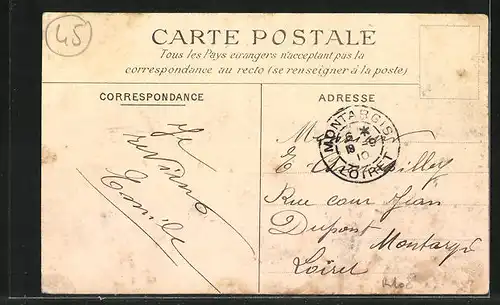 45
CARTE POSTALE
Tous les Pays étrangers n'acceptant pas la
correspondance au recto (se renseigner à la poste)
CORRESPONDANCE
ADRESSE
Je
reviens
Emile
MONTARGIS
LOIRET
E
Rue cour Jean
Dupont Montargis
Loiret